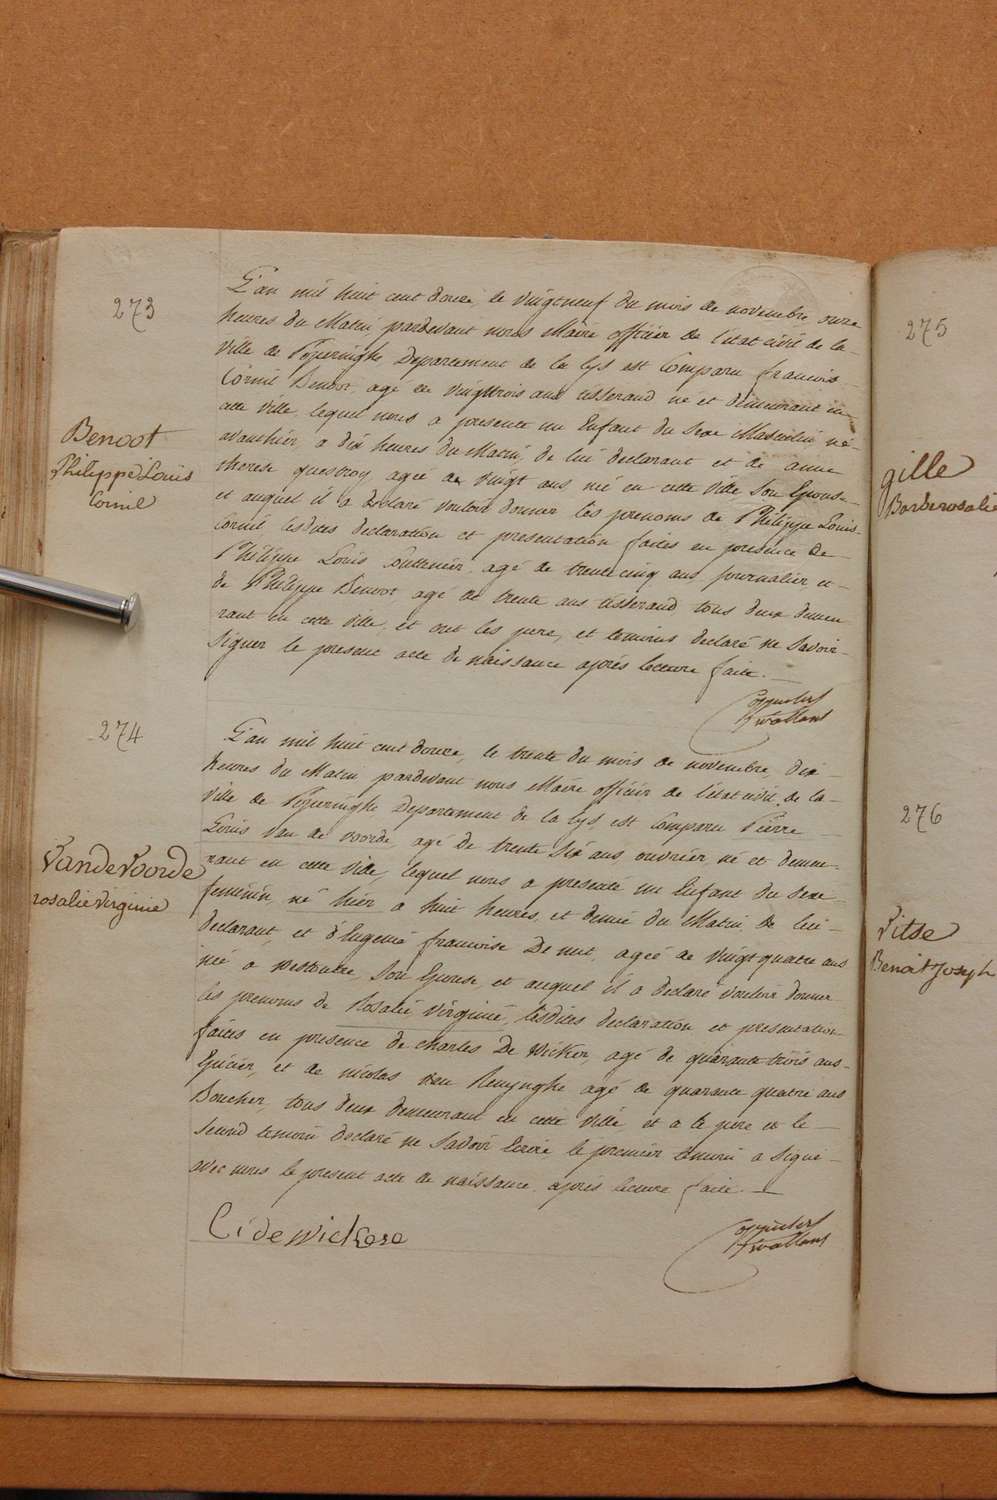 273
L'an mil huit cent douze, le vingtneuf du mois de novembre, onze
heures du Matin, pardevant nous Maire officier de l'état civil de la
ville de Poperinghe, Departement de la Lys est Comparu francois
Cornil Benoot, agé de vingttrois ans tisserand né et demeurant en
cette ville, lequel nous a presenté un Enfant du Sexe Masculin, né
avanthier a dix heures du Matin, de lui declarant et de anne
therese questroy agée de vingt ans née en cette ville, son Epouse
et auquel il a declaré vouloir donner les prenoms de Philippe Louis
Cornil lesdites declaration et presentation faites en presence de
Philippe Louis agé de trente cinq ans, journalier, et
de Philippe Benoot, agé de trente ans tisserand tous deux demeu
rant en cette ville, et ont les pere, et temoins declaré ne savoir
signer le present acte de naissance après lecture faite.
Benoot
Philippe Louis
Cornil
274
L'an mil huit cent douze, le trente du mois de novembre, dix
heures du Matin, pardevant nous Maire officier de l'état civil, de la
ville de Poperinghe, Departement de la Lys, est Comparu Pierre
Louis van de voorde, agé de trente six ans, ouvrier, né et demeu
rant en cette ville, lequel nous a presenté un Enfant du Sexe
feminin, né hier a huit heures, et demie du Matin, de lui
declarant, et d'Eugenie francoise De nut, agée de vingt quatre ans
née a westoutre, son Epouse, et auquel il a declaré vouloir donner
les prenoms de Rosalie virginie, lesdites declaration et presentation
faites en presence de charles De Wicker, agé de quarante trois ans
Epicier, et de nicolas van Renynghe agé de quarante quatre ans
Boucher, tous deux demeurant en cette ville et a le pere et le
second temoin declaré ne savoir Ecrire le premier temoin a signé
avec nous le present acte de naissance, après lecture faite.
Vandevoorde
rosalie virginie
C: de wickere
275
gille
Barberosalie
276
Vitse
Benoit Joseph